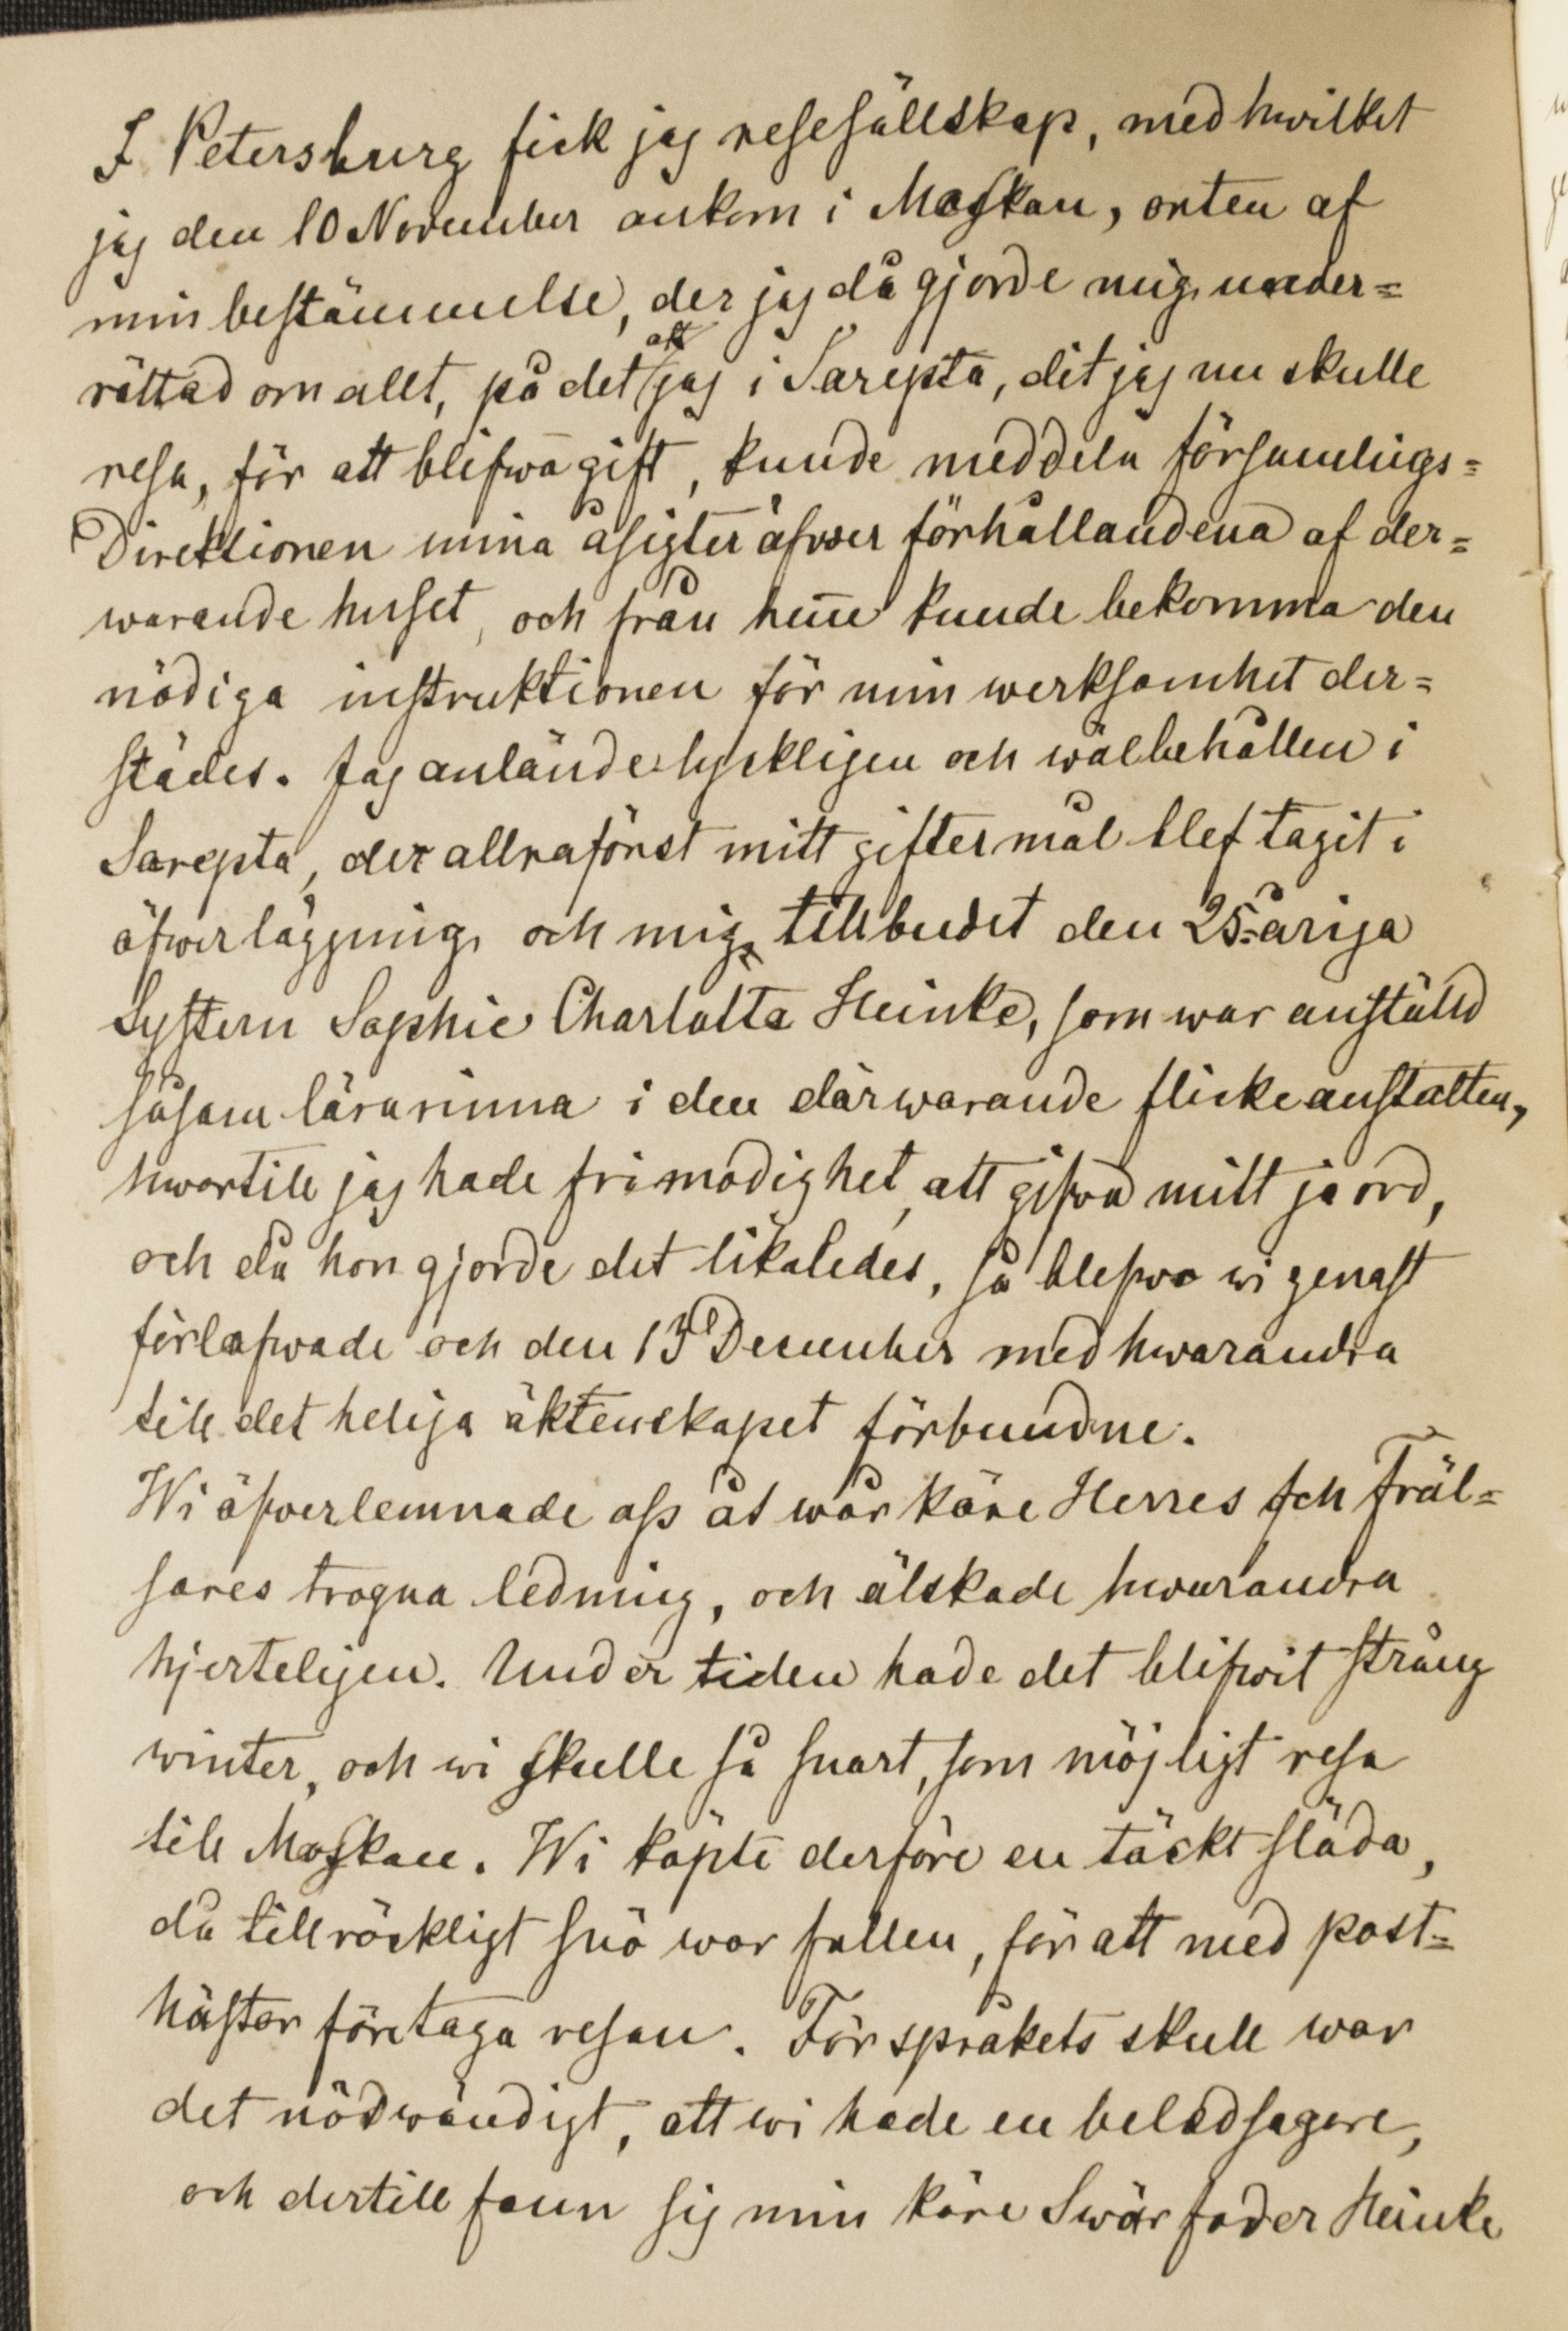 I Petersburg fick jag resesällskap, med hwilket
jag den 10 November ankom i Moskau, orten af
min bestämmelse, der jag då gjorde mig under=
rättad om allt, på det att jag i Sarepta, dit jag nu skulle
resa, för att blifwa gift, kunde meddela församlings=
Direktionen mina åsigter öfwer förhållandena af der=
warande huset, och från hem̅e kunde bekomma den
nödiga instruktionen för min werksamhet der=
städes. Jag anlände lyckligen och wälbehållen i
Sarepta, der allraförst mitt giftermål blef tagit i
öfwerläggning, och mig tillbudet den 25=åriga
Systern Sophie Charlotta Heinke, som war anställd
såsom lärarinna i den därwarande flickeanstalten,
hwartill jag hade frimodighet, att gifwa mitt jaord,
och då hon gjorde det likaledes, så blefwo wi genast
förlofwade och den 13 December med hwarandra
till det heliga äktenskapet förbundne.
Wi öfwerlemnade oss åt wår käre Herres och Fräl=
sares trogna ledning, och älskade hwarandra
hjerteligen. Under tiden hade det blifwit sträng
winter, och wi skulle så snart, som möjligt resa
till Moskau. Wi köpte derföre en täckt släda,
då tillräckligt snö war fallen, för att med post=
hästar företaga resan. För språkets skull war
det nödwändigt, att wi hade en beledsagare,
och dertill fann sig min käre Swärfader Heinke